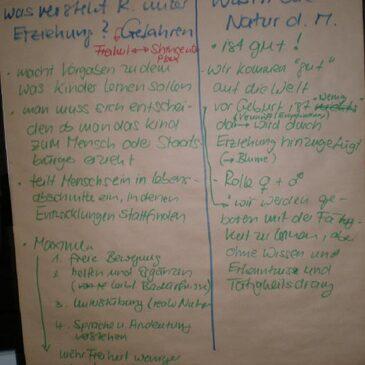 was versteht R. unter
Erziehung? Gefahren
Freiheit ↔ Strenge
• macht Vorgaben zu dem
was Kinder lernen sollen
• man muss sich entschei-
den ob man das Kind
zum Mensch oder Staats-
bürger erzieht
• teilt Menschsein in lebens-
abschnitte ein, in denen
Entwicklungen stattfinden
• Maximen
1. freie Bewegung
2. helfen und ergänzen
3. Unterstützung
4. Sprache u. Andeutung
verstehen
mehr Freiheit weniger
Natur d. M.
• ist gut!
• wir kommen "gut"
auf die Welt
• vor Geburt ist wenig
da → wird durch
Erziehung hinzugefügt
(→ Blume)
• Rolle ♀ + ♂
• wir werden ge-
boren mit der Fähig-
keit zu lernen, aber
ohne Wissen und
Erkenntnisse und
Tätigkeitsdrang